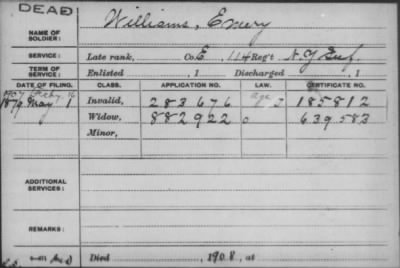 DEAD
NAME OF SOLDIER: Williams, Emery
SERVICE: Late rank, Co. E, 114 Reg't N.Y. Inf.
TERM OF SERVICE: Enlisted , 1 Discharged , 1
DATE OF FILING. CLASS. APPLICATION NO. LAW. CERTIFICATE NO.
1879 May 1 Invalid, 283676 185812
Widow, 882922 639583
Minor,
ADDITIONAL SERVICES:
REMARKS:
Died , 1908, at